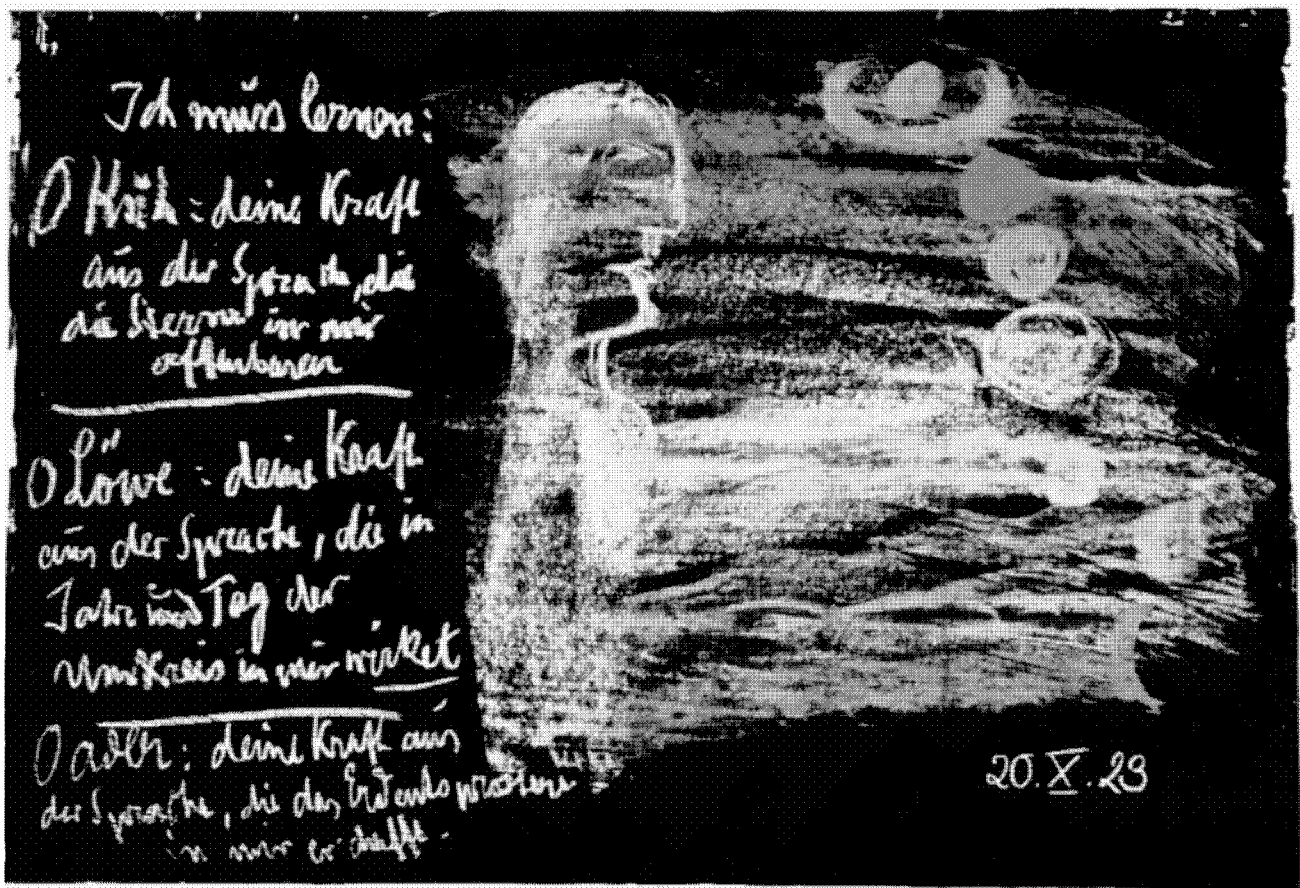 Ich muss lernen:
O Kuh: deine Kraft
aus der Sprache, die
die Sterne in mir
offenbaren
O Löwe: deine Kraft
aus der Sprache, die in
Jahr und Tag der
Umkreis in mir wirket
O Adler: deine Kraft aus
der Sprache, die das
in mir erschafft.
20.X.23